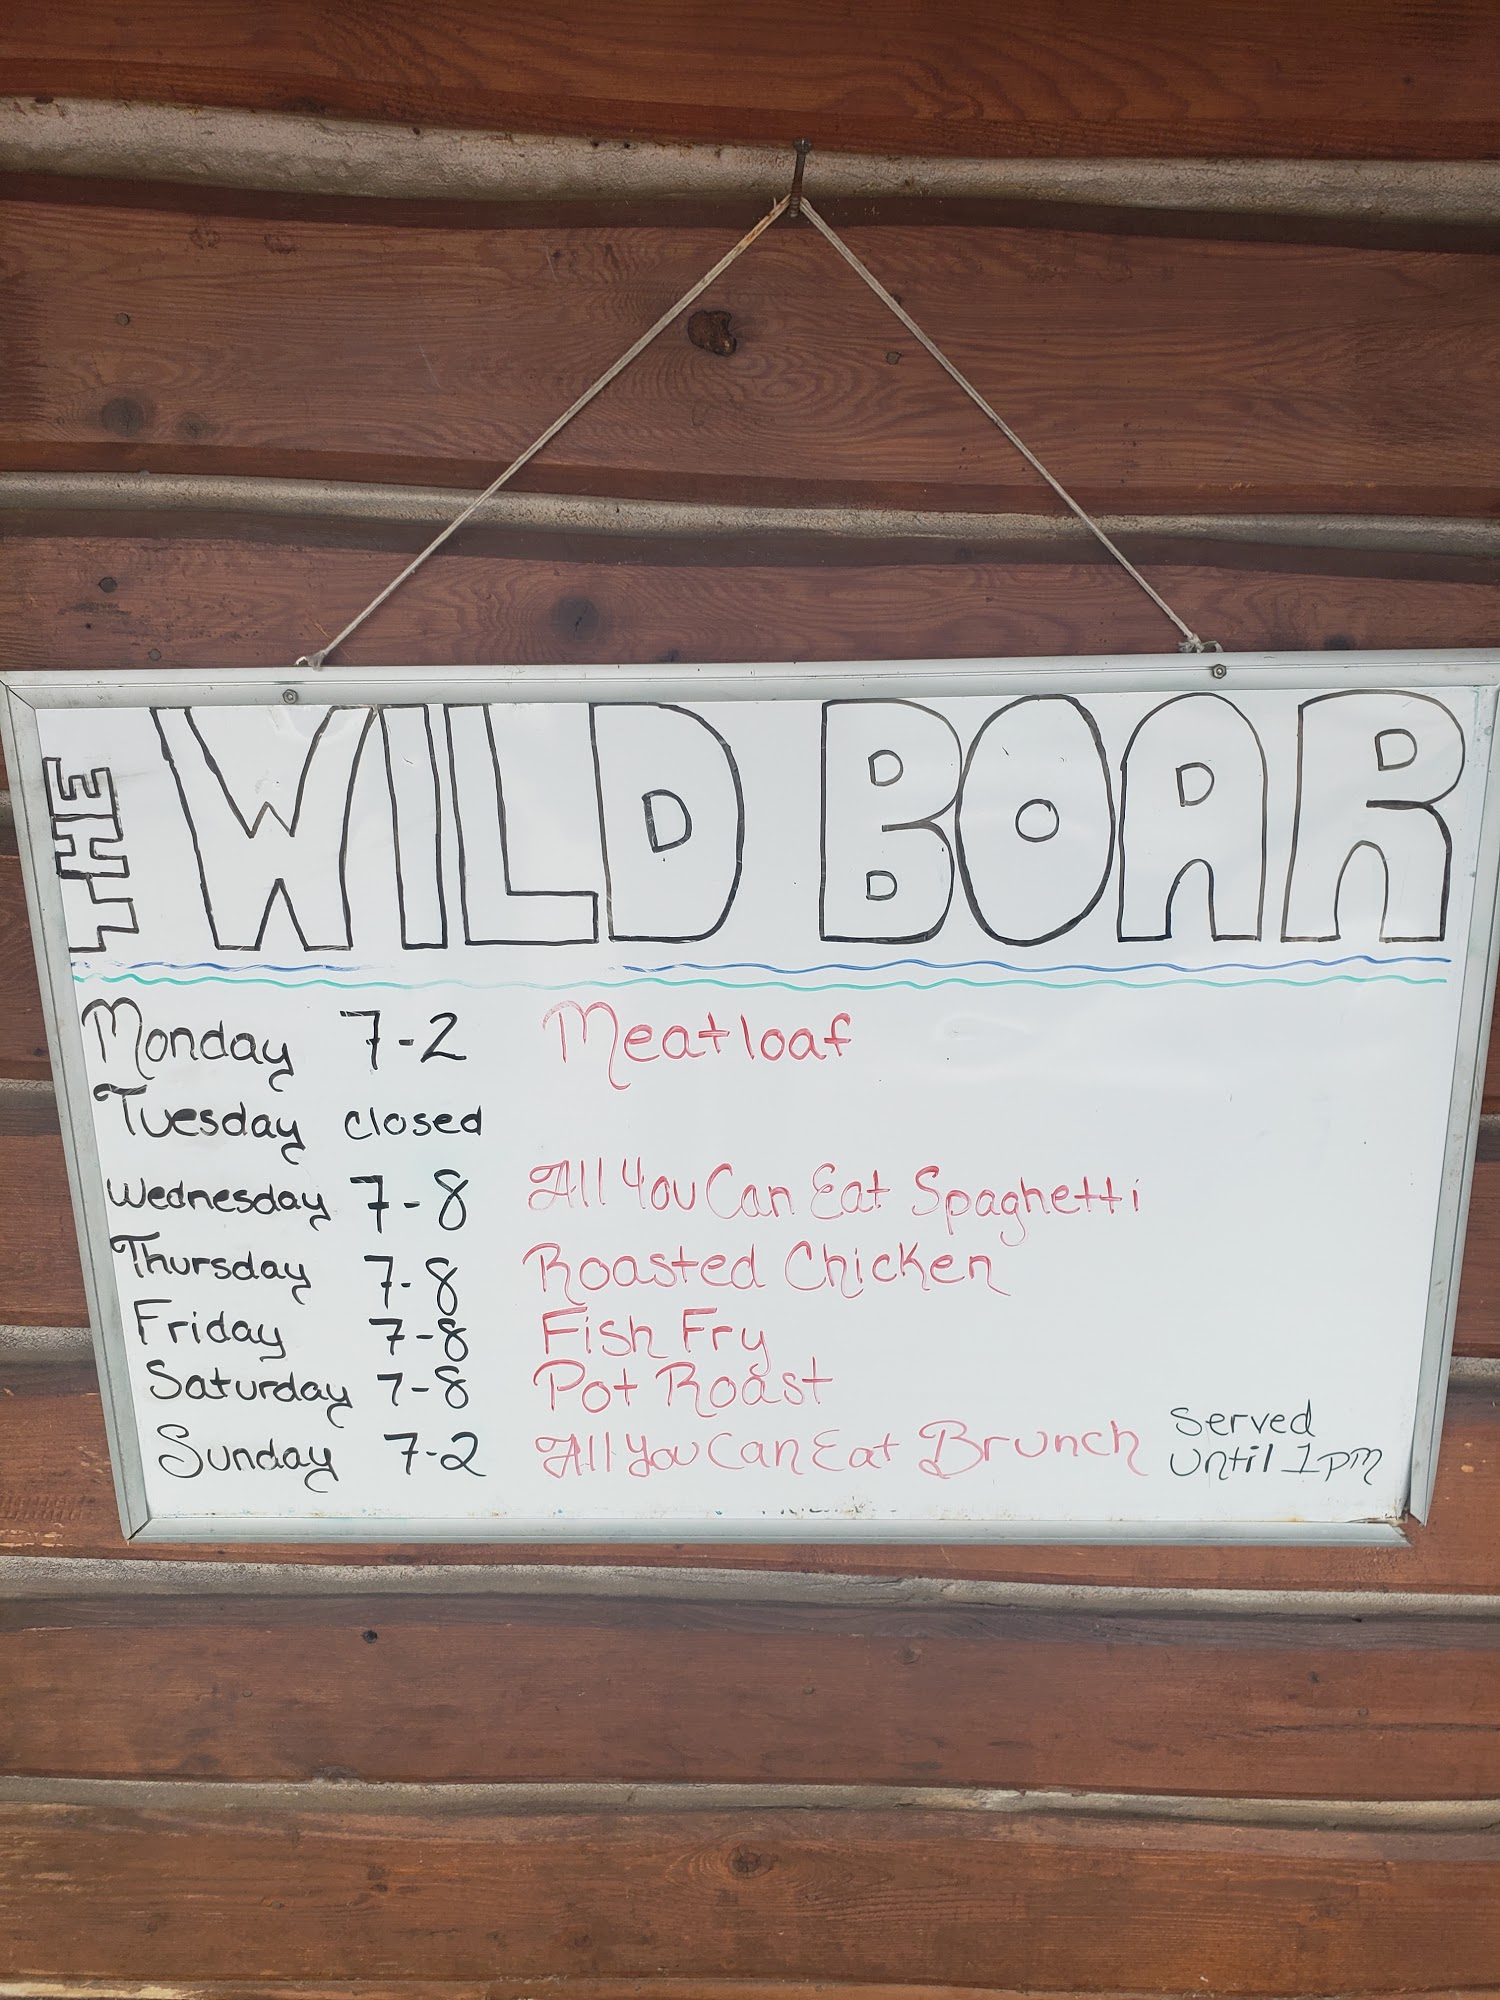 THE WILD BOAR
Monday 7-2 Meatloaf
Tuesday closed
Wednesday 7-8 All You Can Eat Spaghetti
Thursday 7-8 Roasted Chicken
Friday 7-8 Fish Fry
Saturday 7-8 Pot Roast
Sunday 7-2 All You Can Eat Brunch served until 1pm